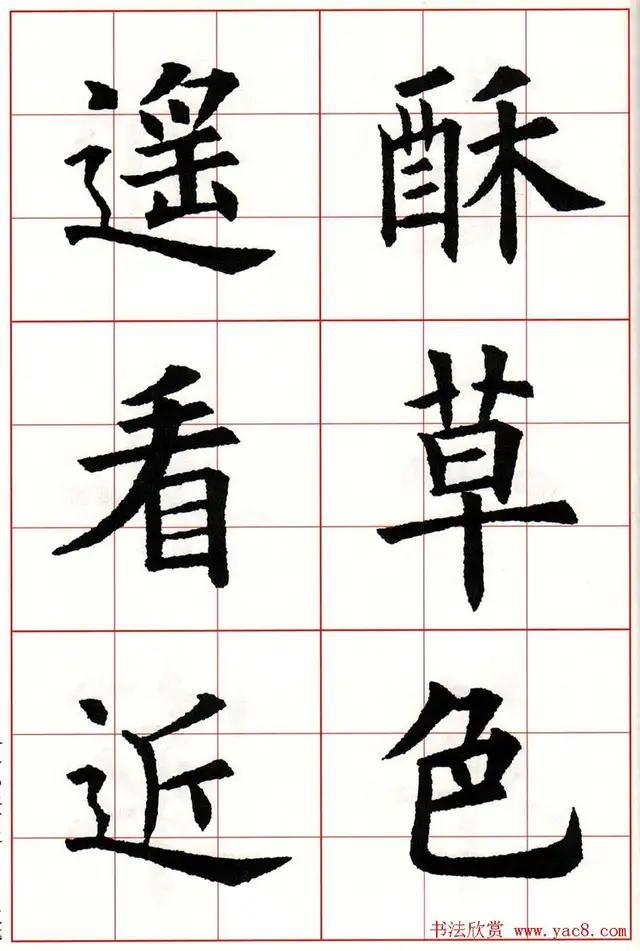 酥草色
遥看近
书法欣赏 www.yac8.com